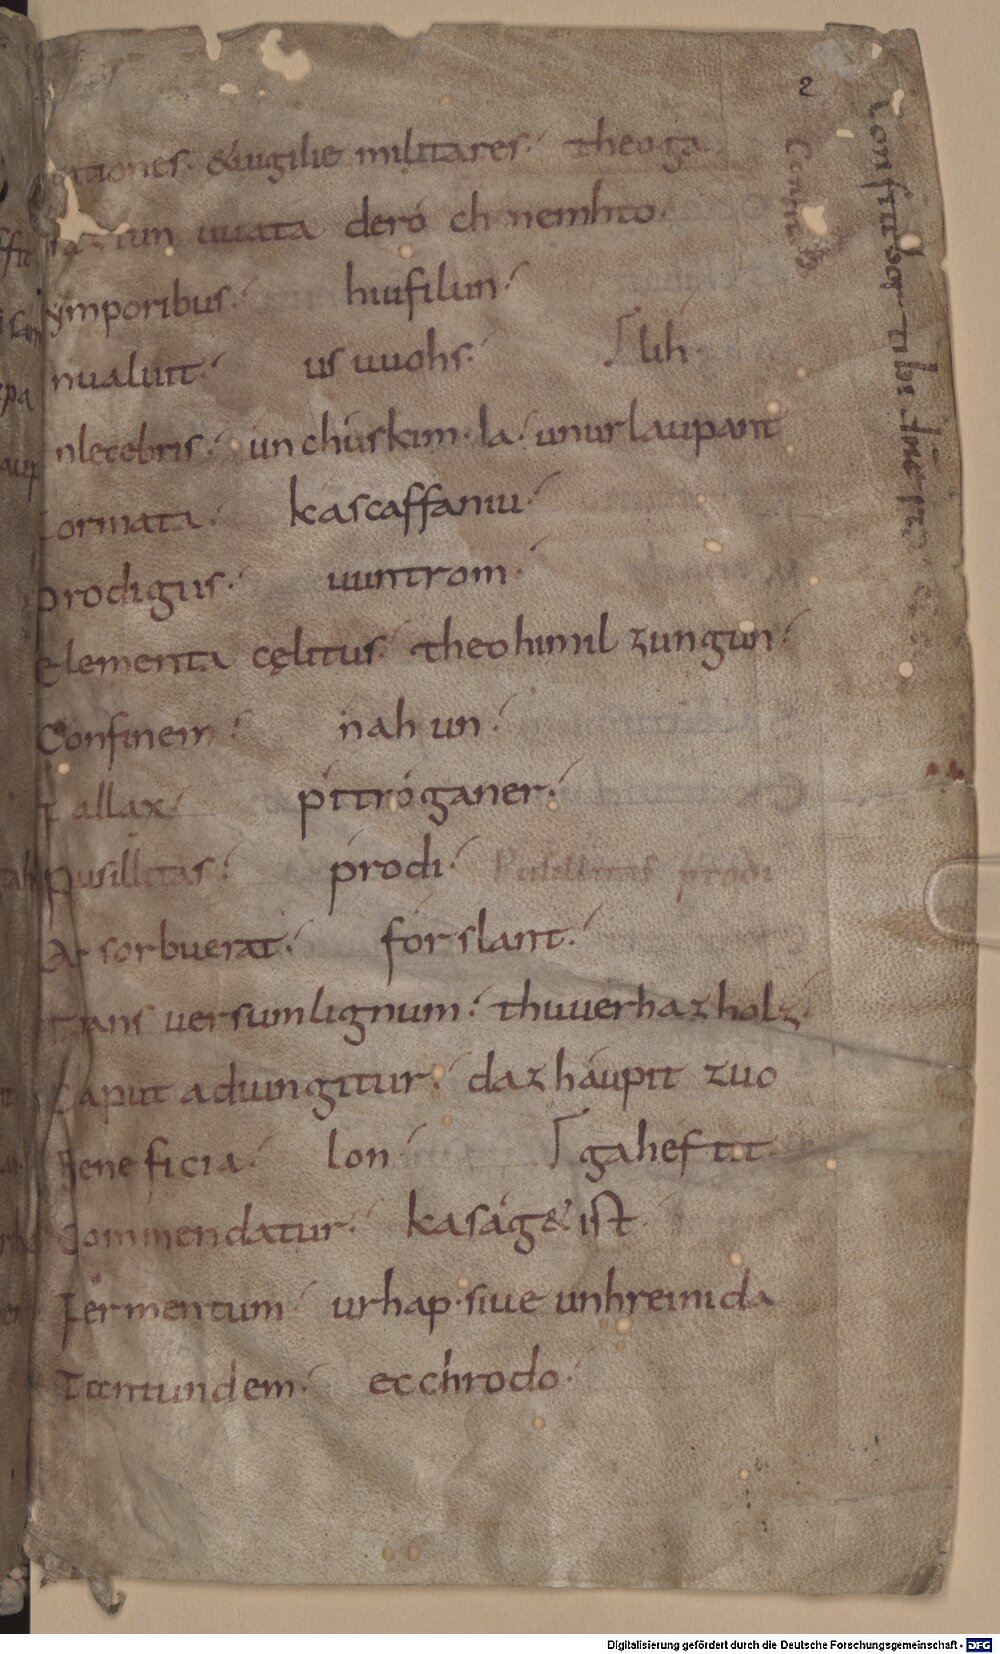 2
ationes. & uigilie militares. theo ga
iun uuata dero ch nemhto.
ymporibus. hiufilun.
nualuit. us uuohs. lih.
nlecebris. un chuskim. la. unurlaupant
formata. kascaffaniu.
prodigus. uuntrom.
elementa cęlitus. theo himil zungun.
Confinem. nah un.
Fallax. pittroganer.
pusillitas. prodi. Pusillitas prodi
Absorbuerat. forslant.
Trans uersum lignum. thuuerhaz holz.
Caput adiungitur. daz haupit zuo
Beneficia. lon gaheftit.
Commendatur. kasag& ist.
Fermentum. urhap. siue unhreinida
Tantundem. ecchrodo.
Digitalisierung gefördert durch die Deutsche Forschungsgemeinschaft - DFG